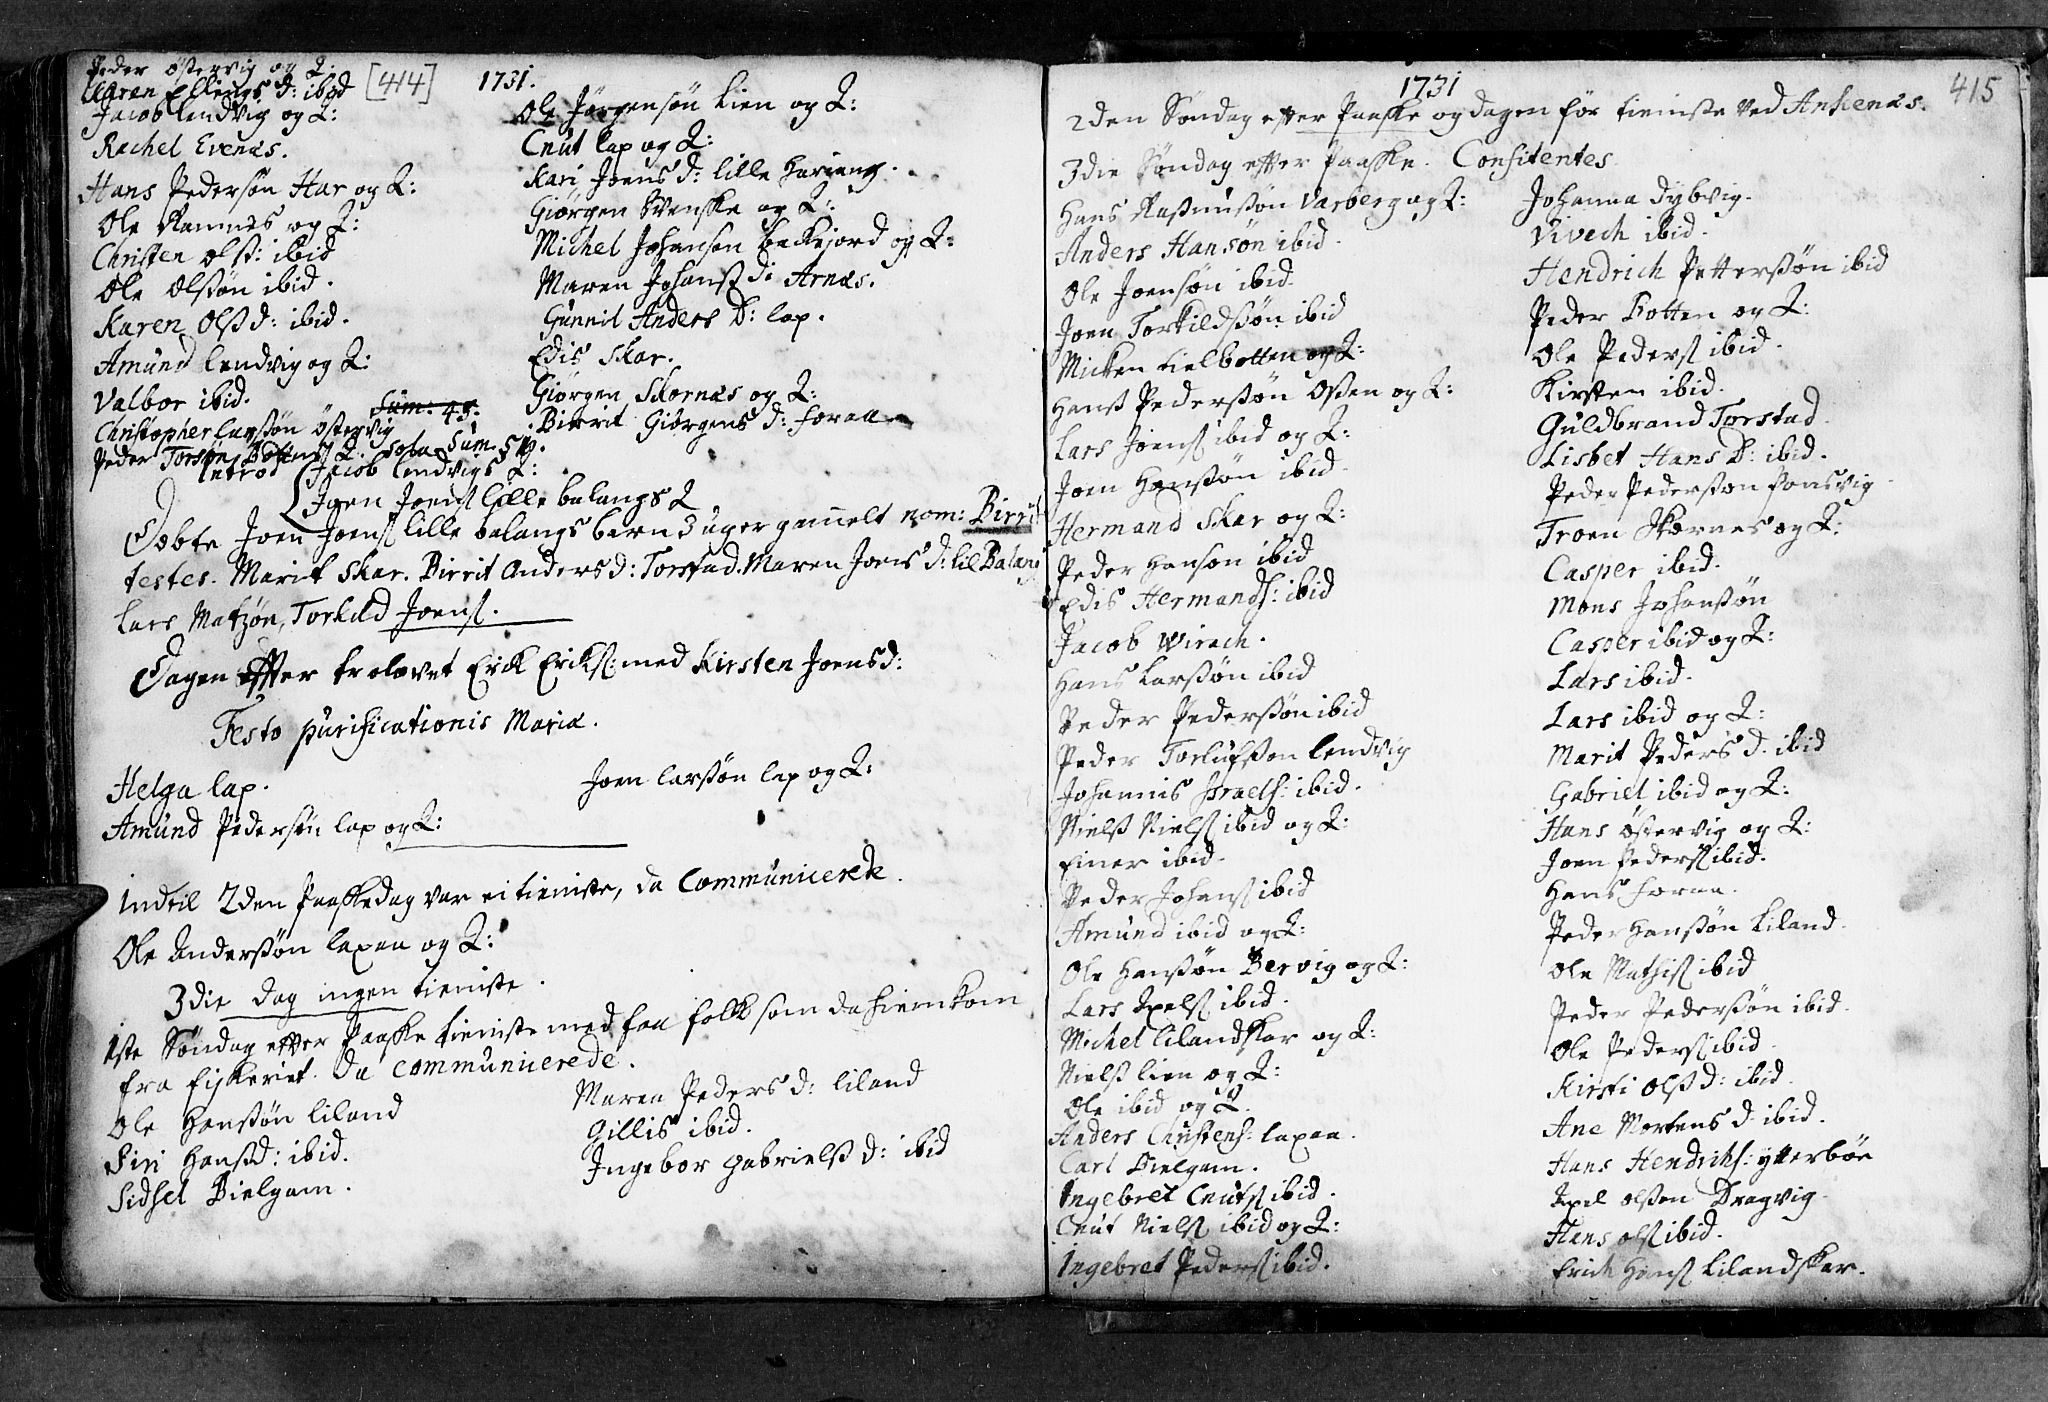 [414] 1731.
Peder Östervig og Q.
Karen Ellings d: ibid
Jacob lendvig og Q:
Rachel Evenæs.
Hans Pedersön Har og Q:
Ole Ramnes og Q:
Christen Olß: ibid
Ole Olßön ibid.
Karen Olß d: ibid.
Amund lendvig og Q:
Valbor ibid.
Christopher larßön Östervig
Peder Torsön Q.
Ole Jörgensön Lien og Q:
Cnut lap og Q:
Kari Joens d: lille
Giörgen Svenske og Q:
Michel Johanson Beckejord og Q:
Maren Johanß d: Arnæs.
Gunnil Anders D: lap.
Edis Skar.
Giörgen Skornæs og Q:
Birrit Giörgens d: foraa
Sum: 45.
Sum. 50.
Introd { Jacob lendvigs Q:
Joen Joenß lille balangs Q
Döbte Joen Joenß lille balangs barn 3 uger gammelt nom: Birrit
testes. Marit Skar. Birrit Anders d: Torstad. Maren Joens d: lil Balang
Lars Matzön, Torkild Joenß.
Dagen effter trolovet Erick Erickß: med Kirsten Joens d:
Festo purificationis Mariæ.
Helga lap.
Amund Pedersön lap og Q:
Joen larßön lap og Q:
Indtil 2den Paaskedag var ei tieniste, da Communicerede.
Ole Anderßön laxaa og Q:
3die dag ingen tieniste.
1ste Söndag effter Paaske tieniste med faa folk som da hiem kom
fra fiskeriet. da communicerede.
Ole Hanßön liland
Siri Hanß d: ibid.
Sidsel Bielgam.
Maren Peders d: liland
Gillis ibid.
Ingebor Gabrielß d: ibid
1731 415
2den Söndag effter Paaske og dagen för tieniste ved Ankenæs.
3die Söndag effter Paaske. Confitentes.
Hans Raßmußön Varberg og Q:
Anders Hansön ibid.
Ole Joensön ibid.
Joen Torkildßön ibid
Micken kielbotten og Q:
Hanß Pederßön Osen og Q:
Lars Joenß ibid og Q:
Joen Hanßön ibid.
Hermand Skar og Q:
Peder Hanson ibid
Edis Hermands: ibid
Jacob Wirach.
Hans Larßön ibid
Peder Pederßön ibid
Peder Torlufson lendvig
Johannis Israels: ibid.
Nielß Nielß ibid og Q:
Einer ibid.
Peder Johanß ibid
Amund ibid og Q:
Ole Hanßön Bervig og Q:
Lars Axelß ibid.
Michel lilandskar og Q:
Nielß lien og Q:
Ole ibid og Q.
Anders Christens: laxaa.
Carl Bielgam.
Ingebret Cnutß ibid.
Cnut Nielß ibid og Q:
Ingebret Pederß ibid.
Johanna Dybvig.
Vivech ibid.
Hendrich Petterßön ibid
Peder Botten og Q:
Ole Pederß ibid.
Kirsten ibid.
Guldbrand Torstad.
Lisbet Hans D: ibid.
Peder Pederßon
Troen Skornes og Q:
Casper ibid.
Mons Johanßön
Casper ibid og Q:
Lars ibid.
Lars ibid og Q:
Marit Peders d: ibid
Gabriel ibid og Q:
Hans Östervig og Q:
Joen Pederß ibid.
Hans foraa.
Peder Hanßön Liland.
Ole Mathiß ibid
Peder Pederßön ibid.
Ole Pederß ibid.
Kirsti Olß d: ibid.
Ane Mortens d: ibid.
Hans Hendriks: ytterböe
Axel Olßen Dragvig.
Hans Olß ibid.
Erich Hanß Lilandskar.